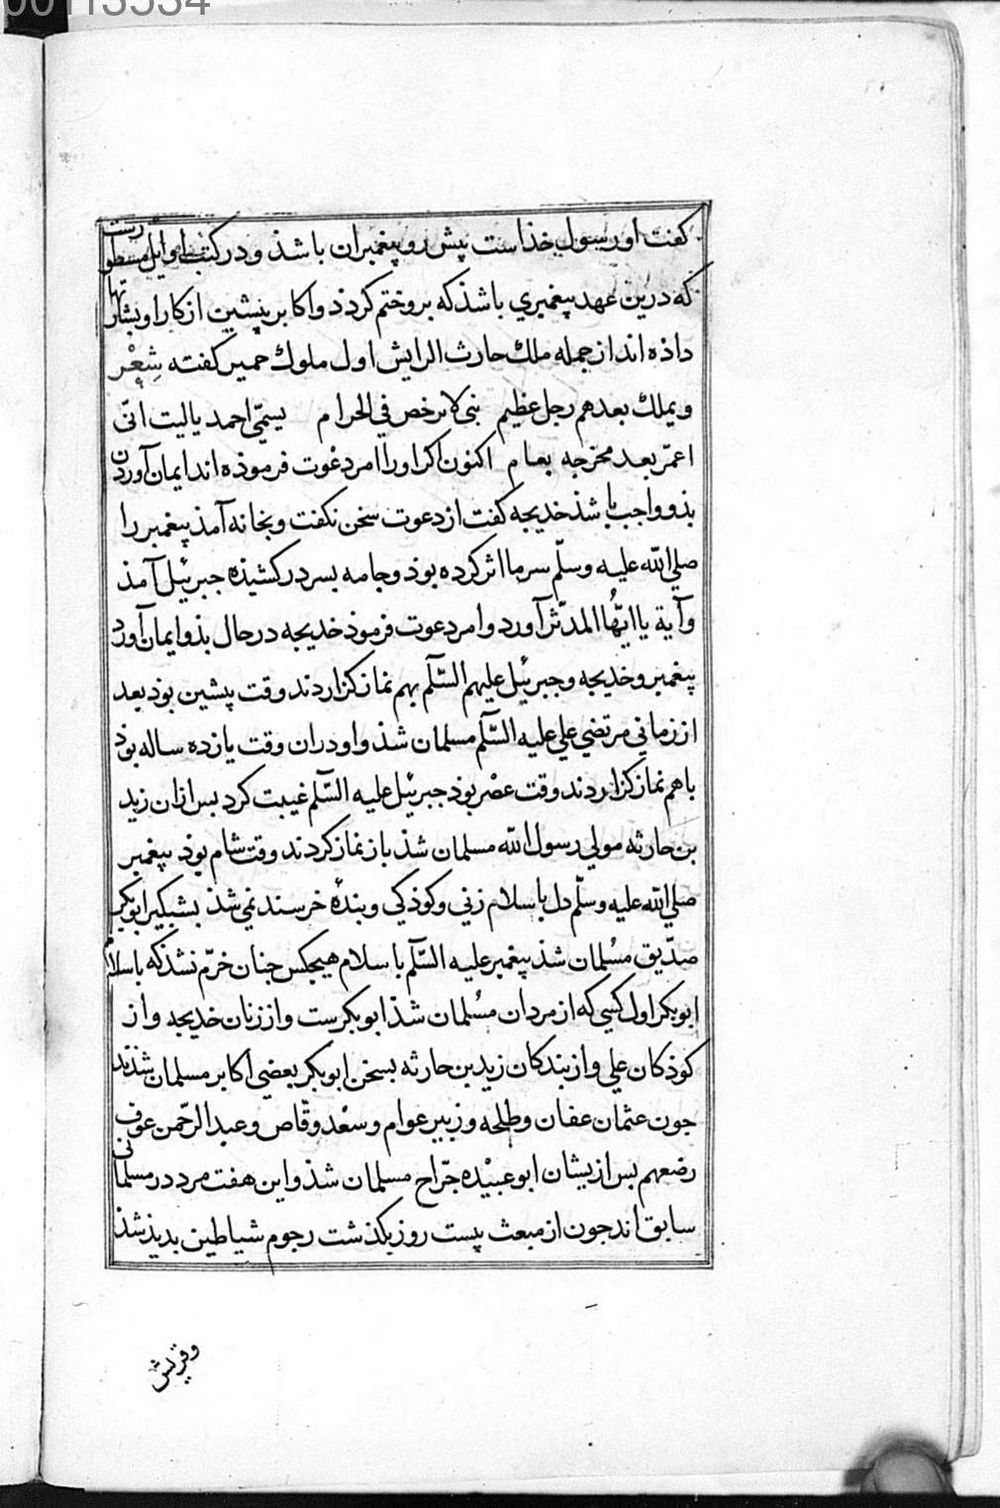 00113534
کفت او رسول خذاست پیش رو پیغمبران باشذ و در کتب اوایل مسطورست
که درین عهد پیغمبري باشذ که برو ختم کردذ و اکابر پیشین از کار او بشارتها
داذه اند از جمله ملك حارث الرایش اول ملوك حمیر کفته شِعْر
ویملك بعدهم رجل عظیم نبی لا یرخص في الحرام یسمّی احمد یا لیت انّی
اعمّر بعد مخرجه بعام اکنون اکر او را امر دعوت فرموذه اند ایمان آوردن
بذو واجب باشذ خدیجه کفت از دعوت سخن نکفت و بخانه آمذ پیغمبر را
صلي الله علیه وسلّم سرما اثر کرده بوذ و جامه بسر در کشیذه جبرئیل آمذ
و آیة یا ایّهُا المدّثر آورد و امر دعوت فرموذ خدیجه در حال بذو ایمان آورد
پیغمبر و خدیجه و جبرئیل علیهم السّلم بهم نماز کزاردند وقت پیشین بوذ بعد
از زماني مرتضي علي علیه السّلم مسلمان شذ و او دران وقت یازده ساله بوذ
باهم نماز کزاردند وقت عصْر بوذ جبرئیل علیه السّلم غیبت کرد بس ازان زید
بن حارثه مولي رسول الله مسلمان شذ باز نماز کردند وقت شام بوذ پیغمبر
صلي الله علیه وسلّم دل باسلام زني و کوذکي و بندهٔ خرسند نمي شذ بشبکیر ابوبکر
صدّیق مسُلمان شذ پیغمبر علیه السّلم باسلام هیجکس جنان خرّم نشذ که باسلام
ابوبکر اول کسي که از مردان مسُلمان شذ ابوبکرست و از زنان خدیجه و از
کوذکان علي و از بندکان زید بن حارثه بسخن ابوبکر بعضي اکابر مسلمان شذند
جون عثمان عفان و طلحه و زبیر عوام و سعْد وقّاص و عبد الرّحمن عوف
رضعهم بس ازیشان ابو عبیْده جرّاح مسلمان شذ و این هفت مرد در مسلمانی
سابق اند جون از مبعث بیست روز بکذشت رجوم شیاطین بدیذ شذ
وقریش